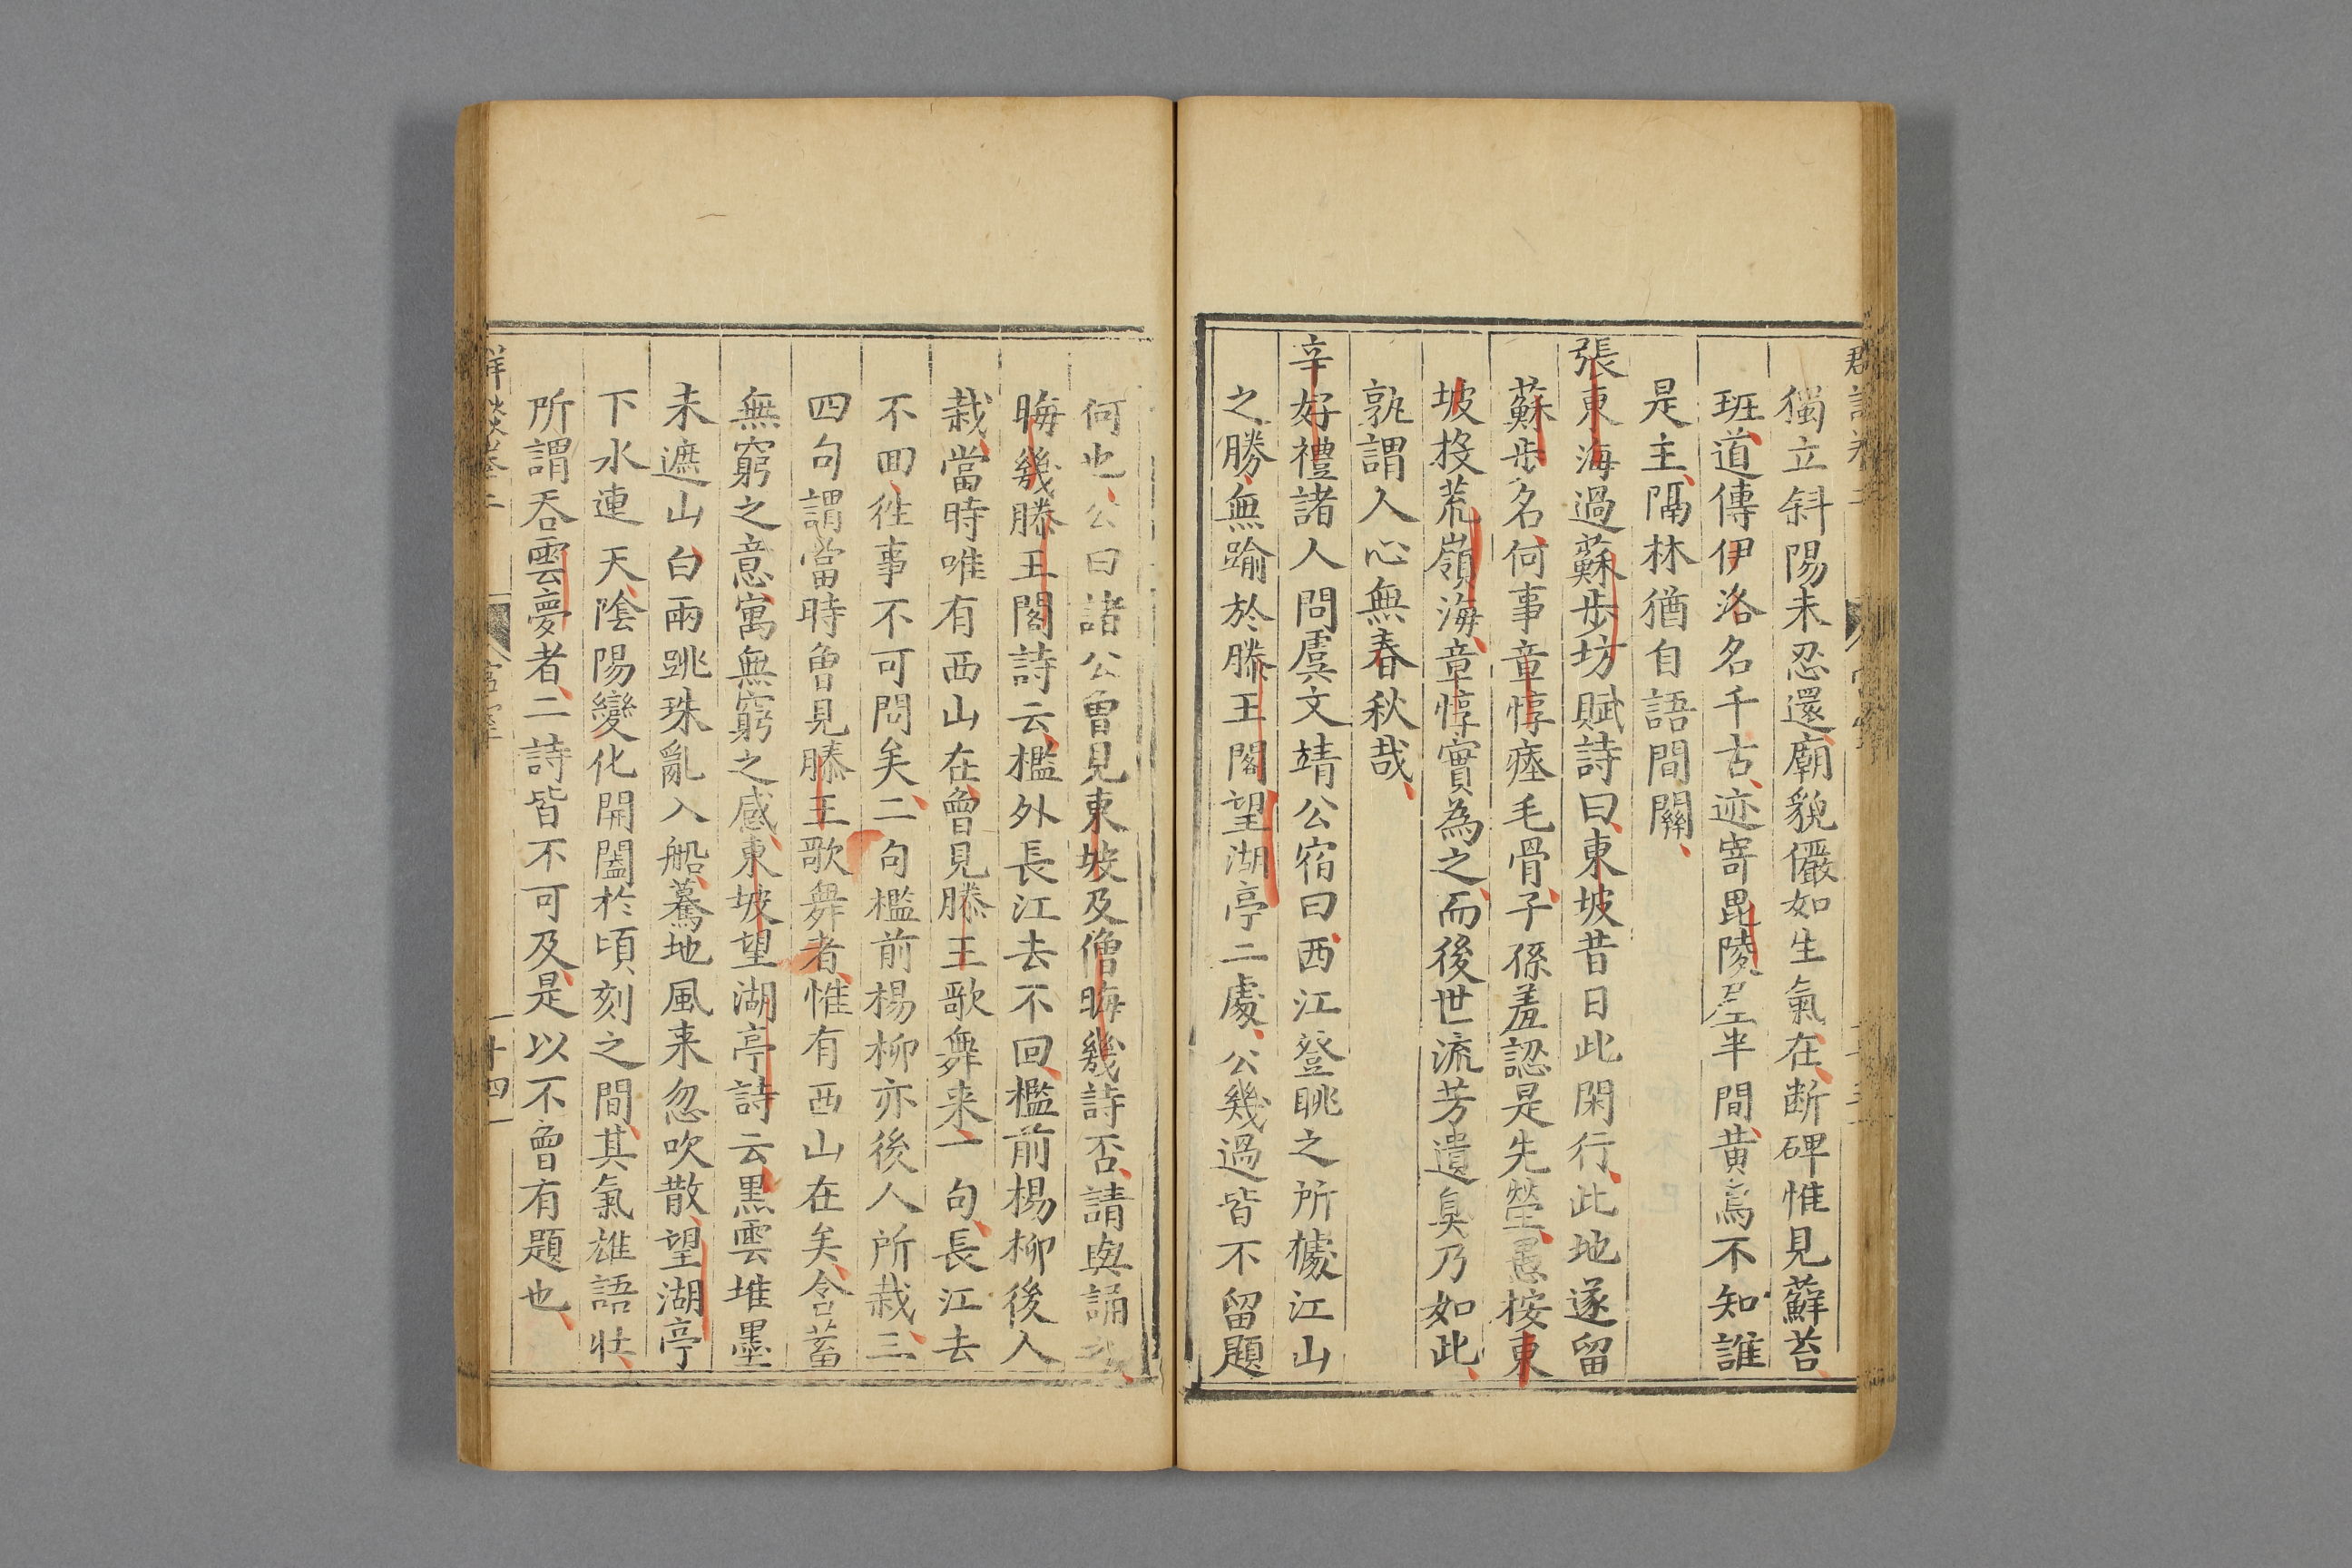 獨立斜陽未忍還廟貌儼如生氣在断碑惟見蘇苔
班道傳伊洛名千古迹寄毘陵屋半間黄鳥不知誰
是主隔林猶自語間關
張東海過蘇步坊賦詩曰東坡昔日此閑行此地遂留
蘇步名何事章惇瘞毛骨子孫羞認是先塋愚按東
坡投荒嶺海章惇實為之而後世流芳遺臭乃如此
孰謂人心無春秋哉
辛好禮諸人問虞文靖公宿曰西江登眺之所據江山
之勝無踰於滕王閣望湖亭二處公幾過皆不留題
何也公曰諸公曽見東坡及僧晦幾詩否請與誦
晦幾滕王閣詩云檻外長江去不回檻前楊柳後人
栽當時唯有西山在曽見滕王歌舞来一句長江去
不囬徃事不可問矣二句檻前楊柳亦後人所栽三
四句謂當時曽見滕王歌舞者惟有西山在矣含蓄
無窮之意寓無窮之感東坡望湖亭詩云黒雲堆墨
未遮山白雨跳珠亂入船驀地風来忽吹散望湖亭
下水連天陰陽變化開闔於頃刻之間其氣雄語壮
所謂吞雲夢者二詩皆不可及是以不曽有題也
十四